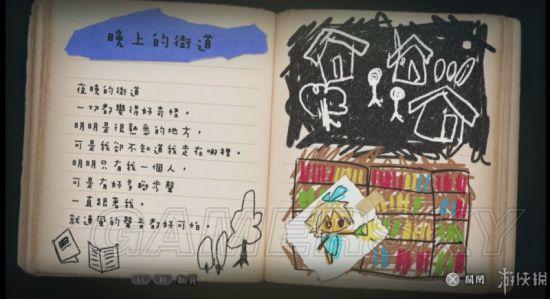 晚上的街道
夜晚的街道
一切都變得好奇怪。
明明是很熟悉的地方，
可是我卻不知道我走在哪裡。
明明只有我一個人，
可是有好多腳步聲
一直跟著我。
就連風的聲音都好可怕。
GAMERSKY
翻頁
關閉
游侠網